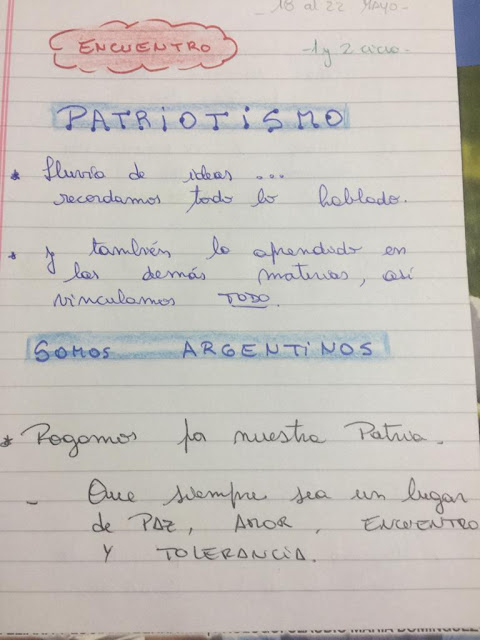 - 18 al 22 MAYO -
ENCUENTRO
- 1 y 2 ciclo -
PATRIOTISMO
* Lluvia de ideas ...
recordamos todo lo hablado.
* y también lo aprendido en
las demás materias, así
vinculamos TODO.
SOMOS ARGENTINOS
* Rogamos por nuestra Patria.
- Que siempre sea un lugar
de PAZ, AMOR, ENCUENTRO
Y TOLERANCIA.
CLAUDIO MARIA DOMINGUEZ